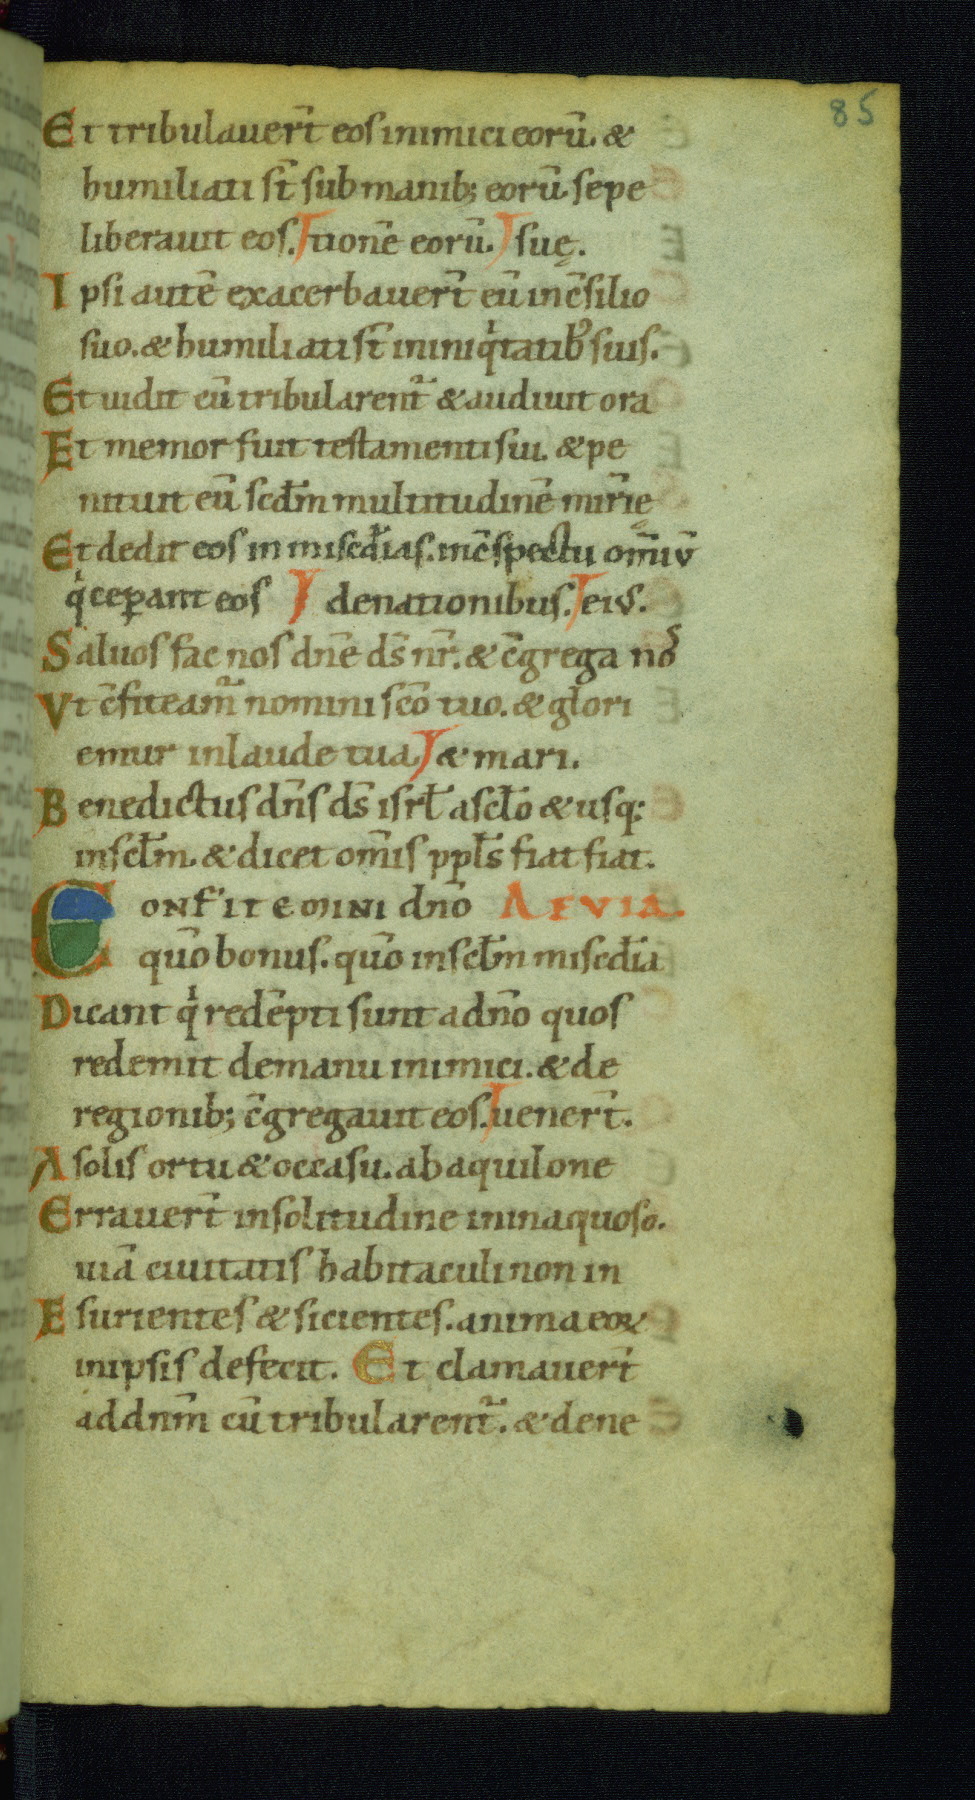 85
Et tribulauer̄t eos inimici eorū. &
humiliati st̄ sub manib; eorū. sepe
liberauit eos. tionē eorū. suę.
Ipsi autē exacerbauer̄t eū in c̄silio
suo. & humiliati st̄ in iniqͥtatibꝰ suis.
Et uidit cū tribularent᷑ & audiuit ora
Et memor fuit testamenti sui. & pe
nituit eū scd̄m multitudinē mīę
Et dedit eos in misc̄dias. in c̄spectu om̄iū
qͥ ceꝑant eos denationibus. eiꝰ.
Saluos fac nos dn̄e ds̄ nr̄. & c̄grega nos
Vt c̄fiteam᷑ nomini scō tuo. & glori
emur in laude tua & mari.
Benedictus dn̄s ds̄ isrl̄ ascl̄o & usq;
in scl̄m. & dicet om̄is ppl̄s fiat fiat.
Confitemini dn̄o AEVIA.
quō bonus. quō in scl̄m misc̄dia
Dicant qͥ redēpti sunt a dn̄o quos
redemit de manu inimici. & de
regionib; c̄gregauit eos. uener̄t.
A solis ortu & occasu. ab aquilone
Errauer̄t in solitudine in inaquoso.
uiā ciuitatis habitaculi non in
Esurientes & sicientes. anima eoꝝ
in ipsis defecit. Et clamauer̄t
ad dn̄m cū tribularent᷑. & de ne